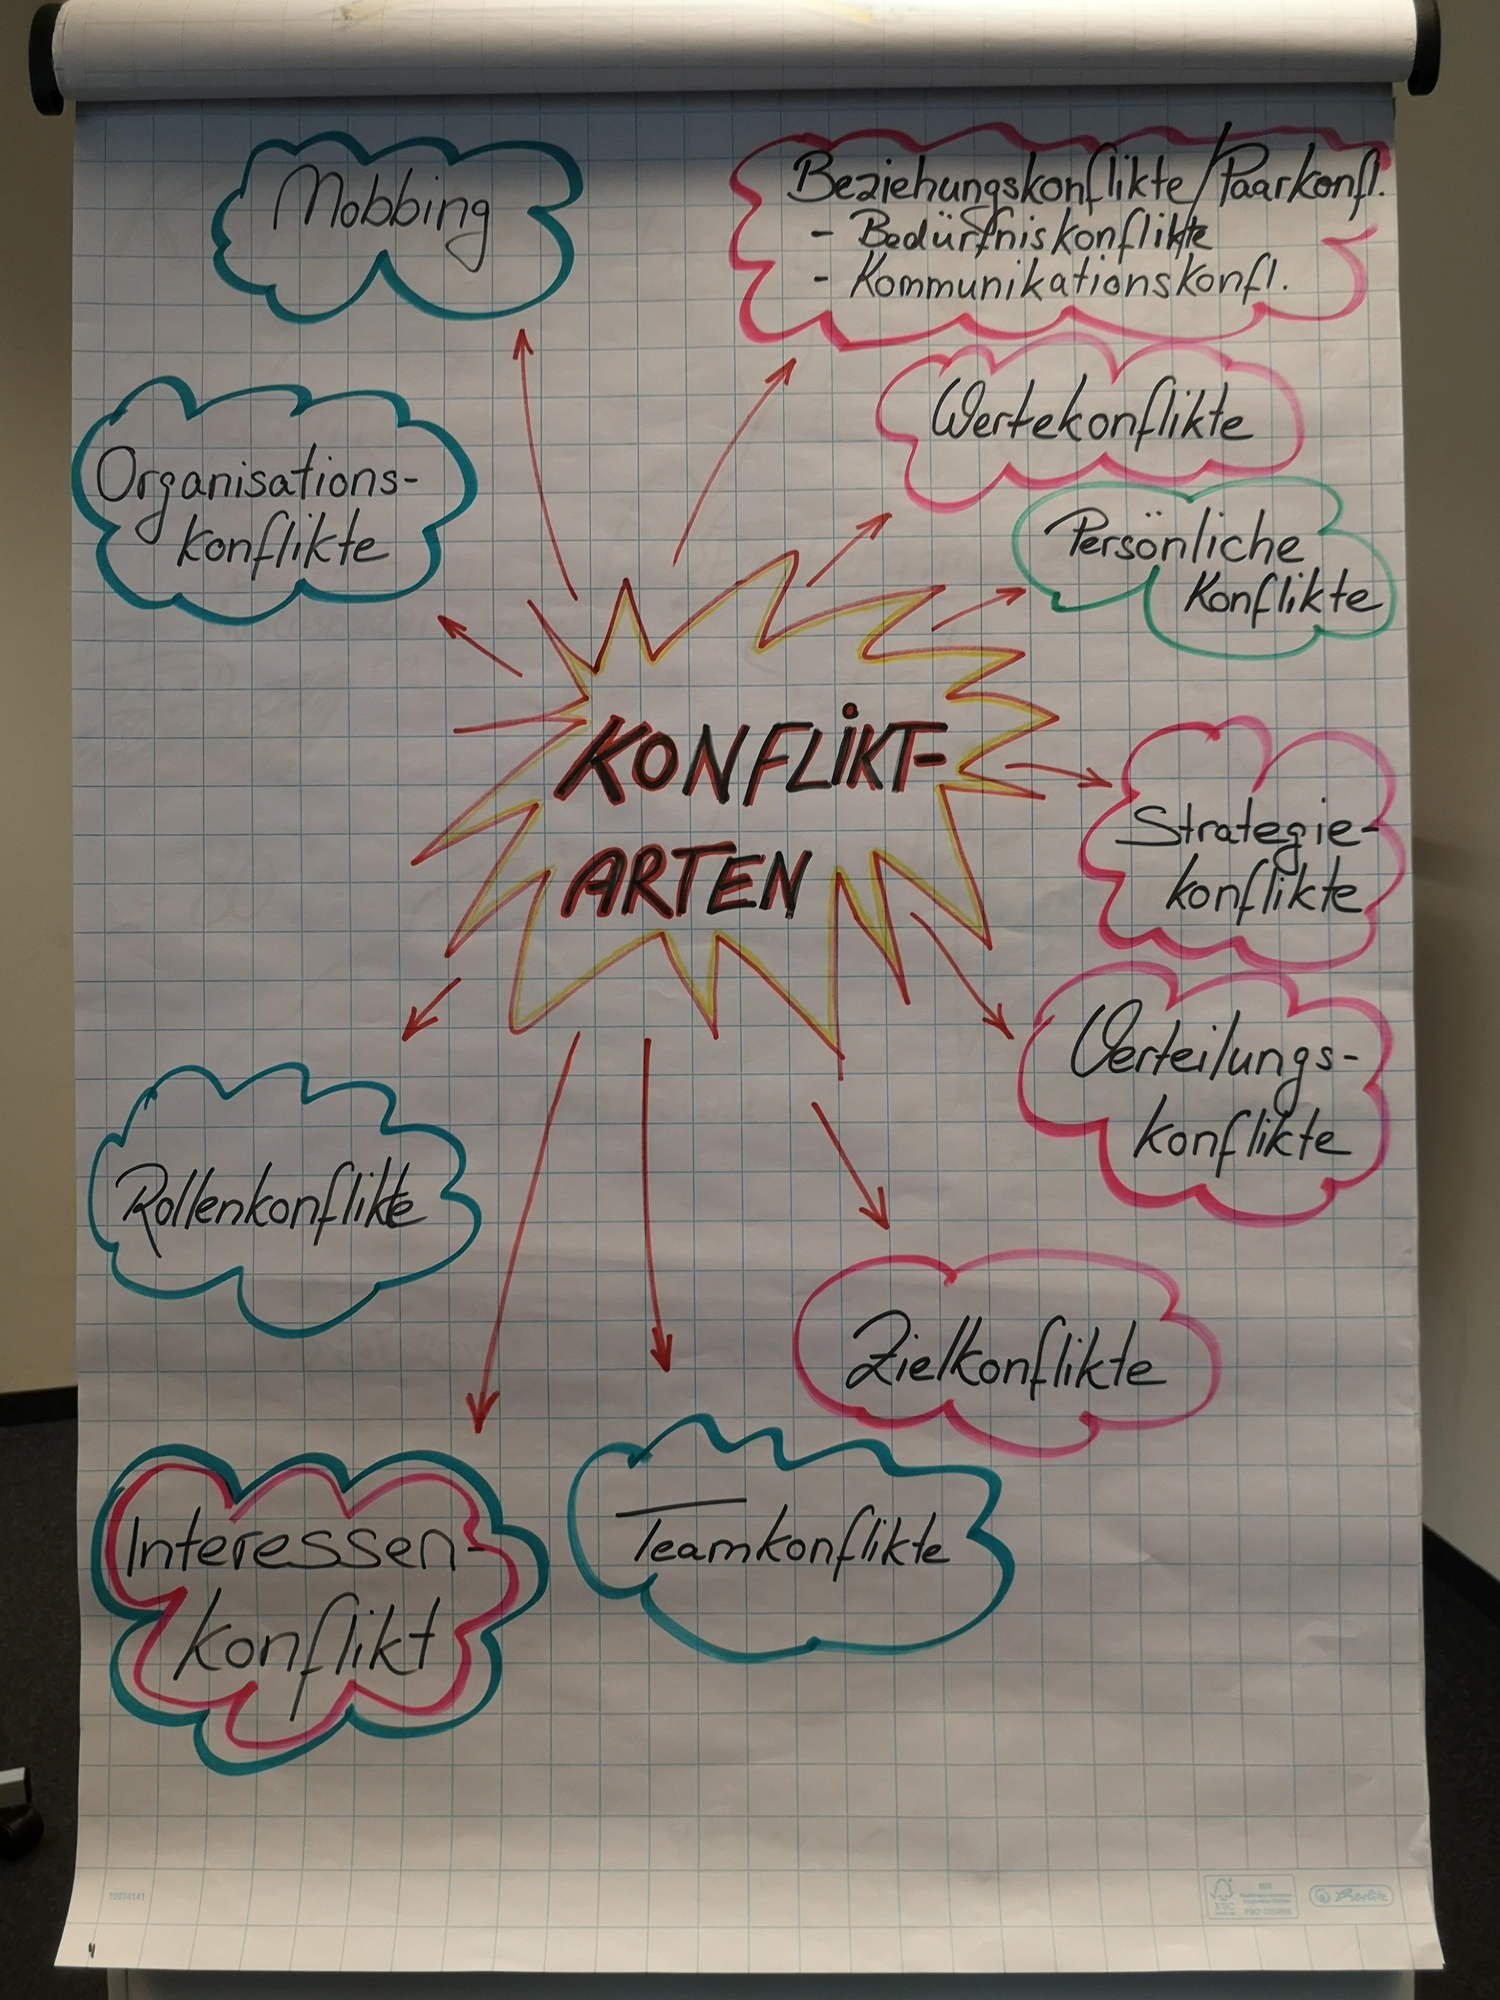 Mobbing
Beziehungskonflikte/Paarkonfl.
- Bedürfniskonflikte
- Kommunikationskonfl.
Wertekonflikte
Organisations-
konflikte
Persönliche
Konflikte
KONFLIKT-
ARTEN
Strategie-
konflikte
Verteilungs-
konflikte
Rollenkonflikte
Zielkonflikte
Interessen-
konflikt
Teamkonflikte
10034141
MIX
FSC
Herlitz
4